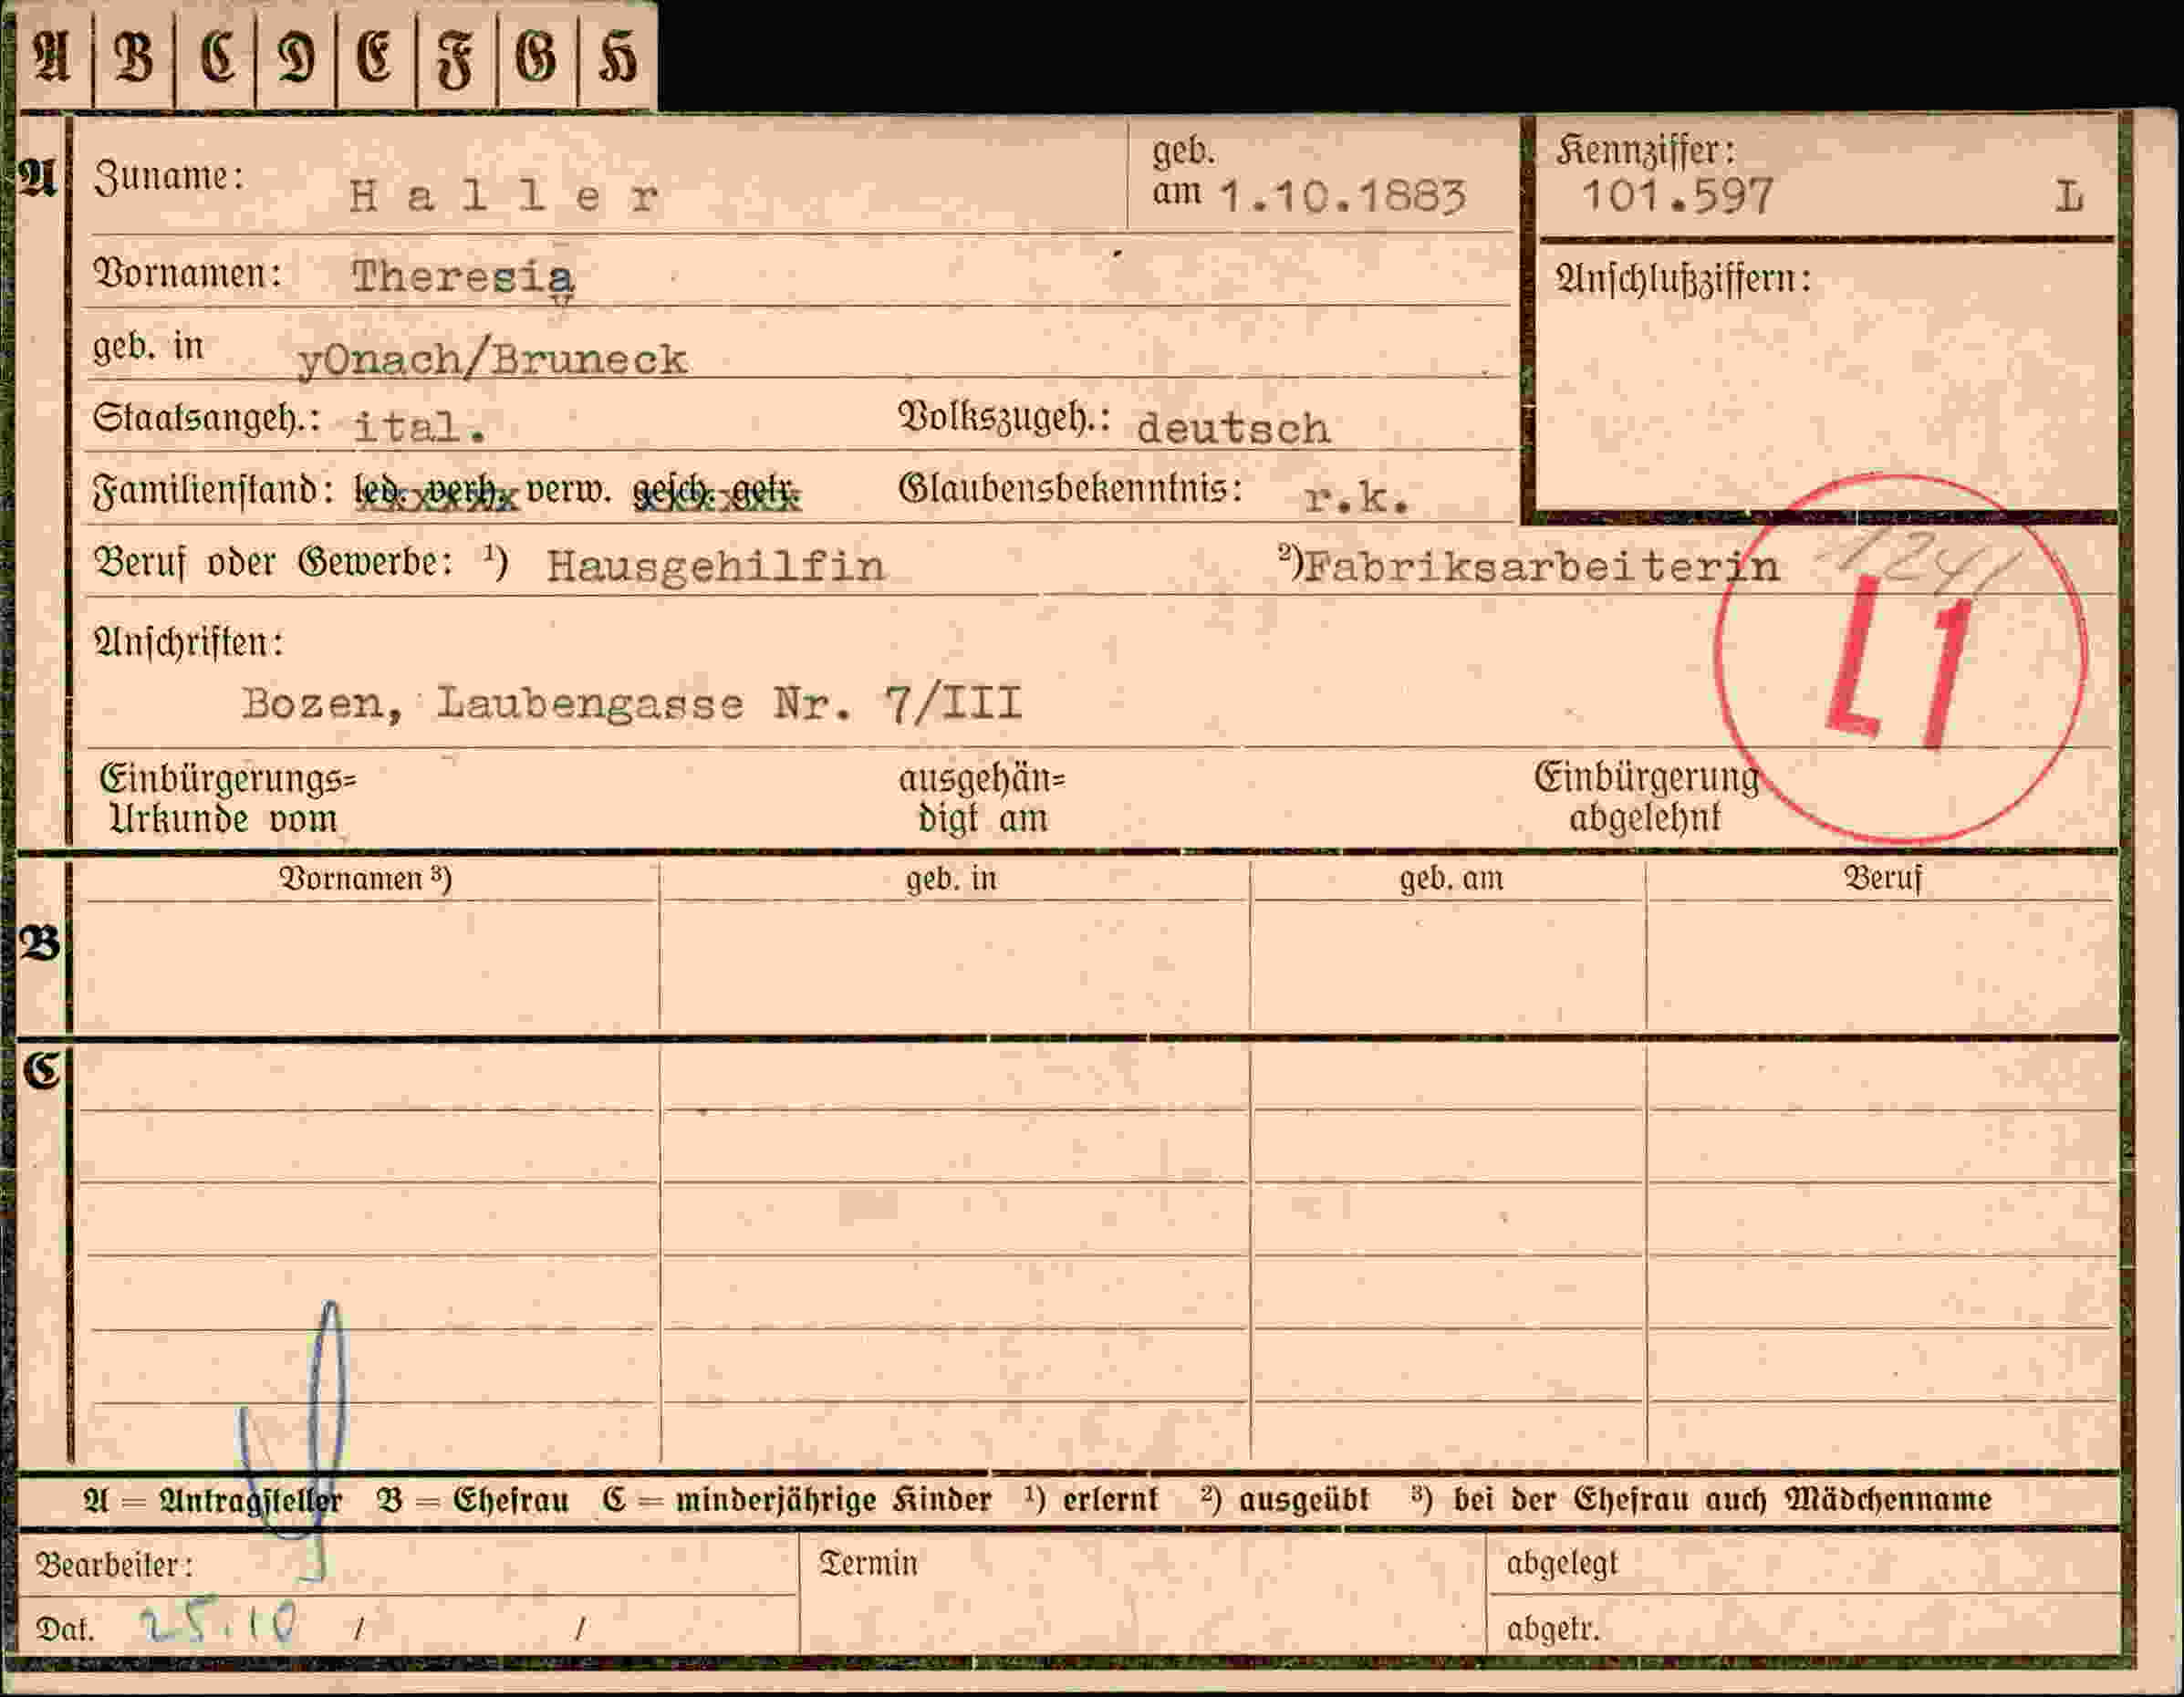 A B C D E F G H
A Zuname: Haller geb. am 1.10.1883 Kennziffer: 101.597 L
Vornamen: Theresia Anschlußziffern:
geb. in yOnach/Bruneck
Staatsangeh.: ital. Volkszugeh.: deutsch
Familienstand: led. verh. verw. gesch. getr. Glaubensbekenntnis: r.k.
Beruf oder Gewerbe: ¹) Hausgehilfin ²) Fabriksarbeiterin 1241
L1
Anschriften:
Bozen, Laubengasse Nr. 7/III
Einbürgerungs= ausgehän= Einbürgerung
Urkunde vom digt am abgelehnt
B Vornamen ³) geb. in geb. am Beruf
C
A = Antragsteller B = Ehefrau C = minderjährige Kinder ¹) erlernt ²) ausgeübt ³) bei der Ehefrau auch Mädchenname
Bearbeiter: Termin abgelegt
Dat. 25.10 / / abgetr.